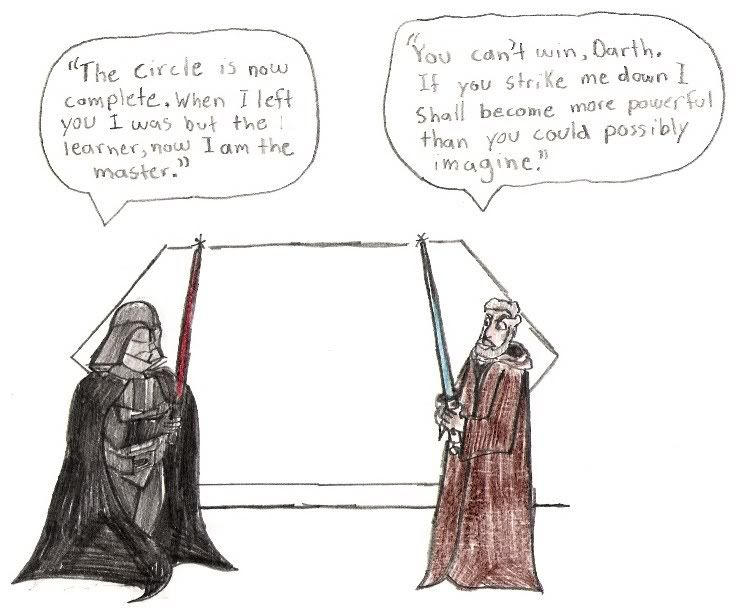 "The Circle is now
complete. When I left
you I was but the
learner, now I am the
master."
"You can't win, Darth.
If you strike me down I
shall become more powerful
than you could possibly
imagine."